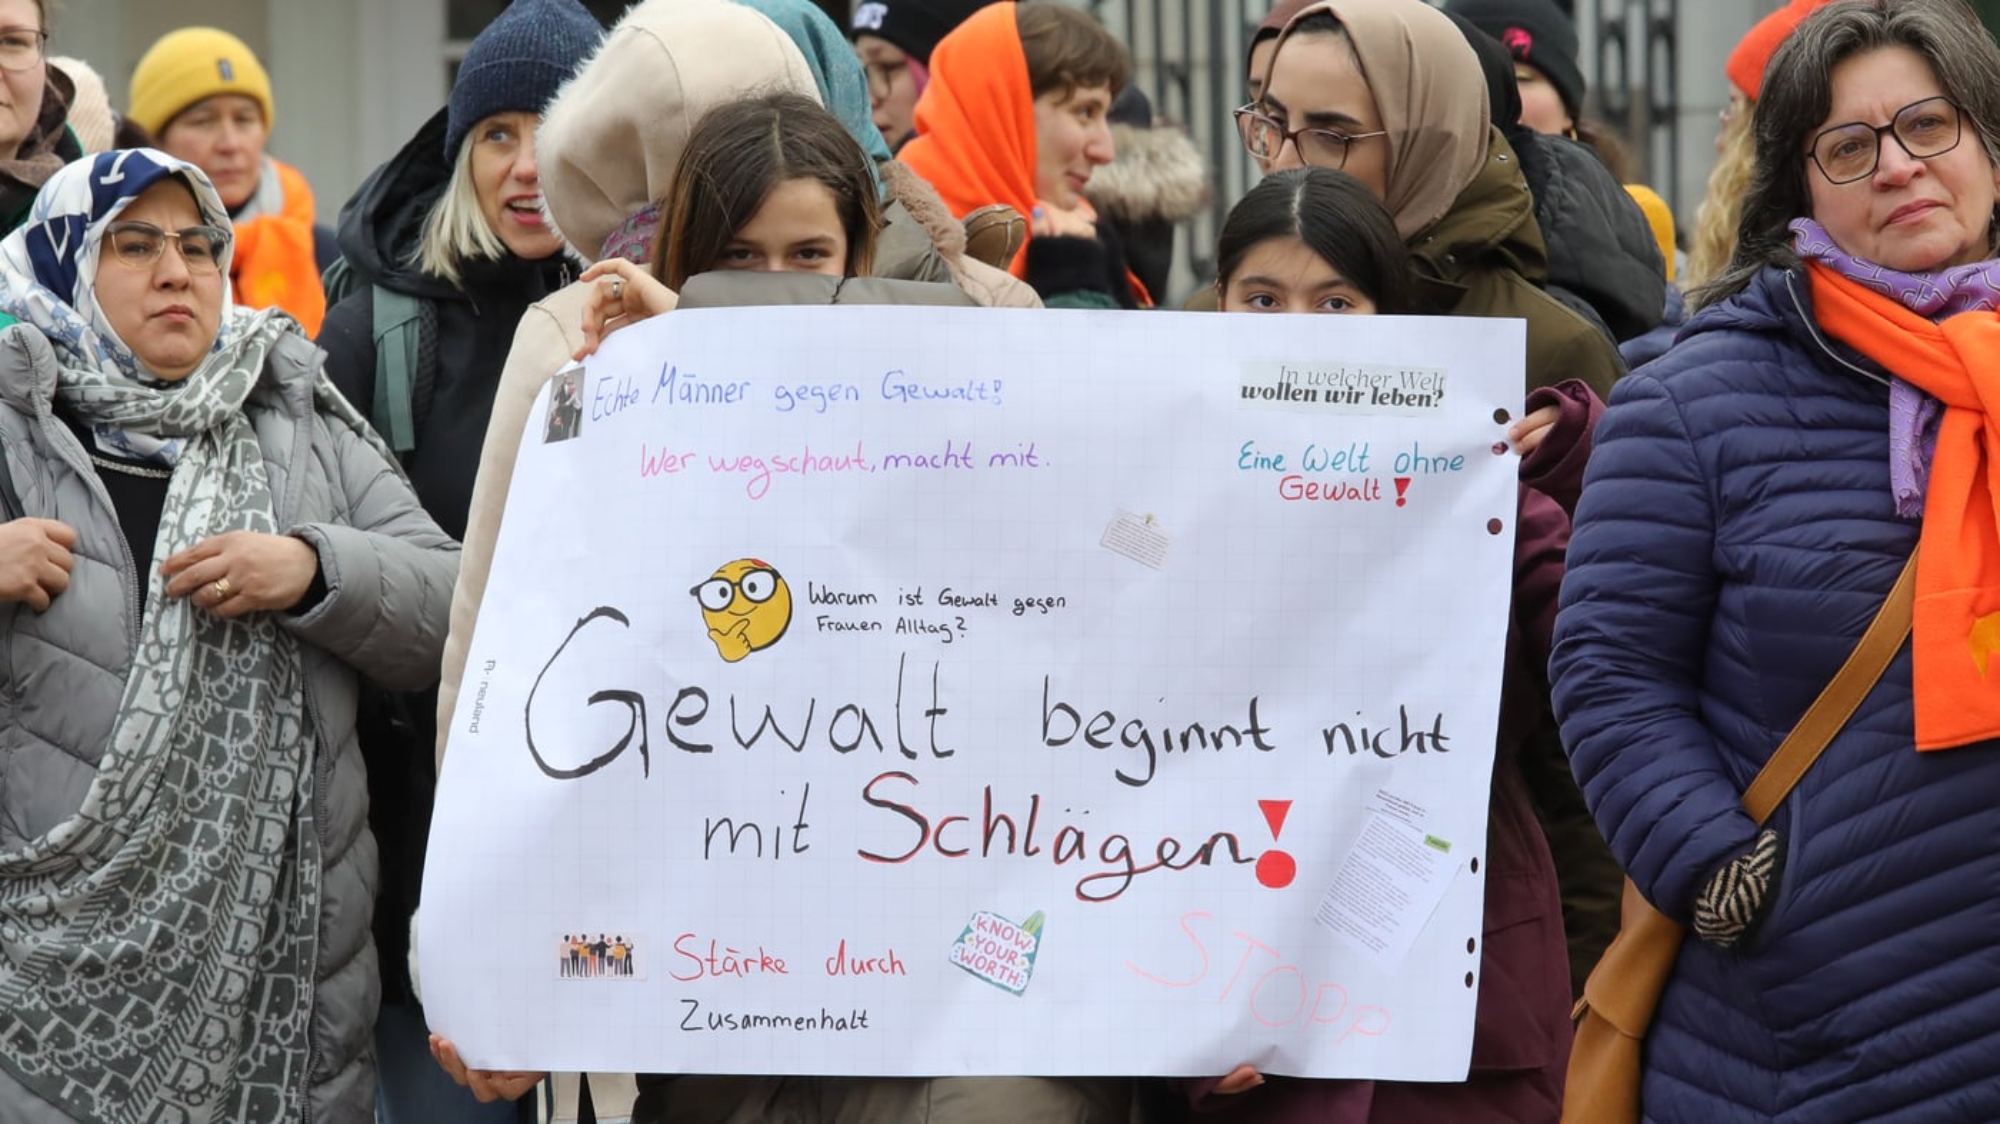 Echte Männer gegen Gewalt!
In welcher Welt
wollen wir leben?
Wer wegschaut, macht mit.
Eine Welt ohne
Gewalt!
Warum ist Gewalt gegen
Frauen Alltag?
neuland
Gewalt beginnt nicht
mit Schlägen!
KNOW
YOUR
WORTH
Stärke durch
Zusammenhalt
STOPP